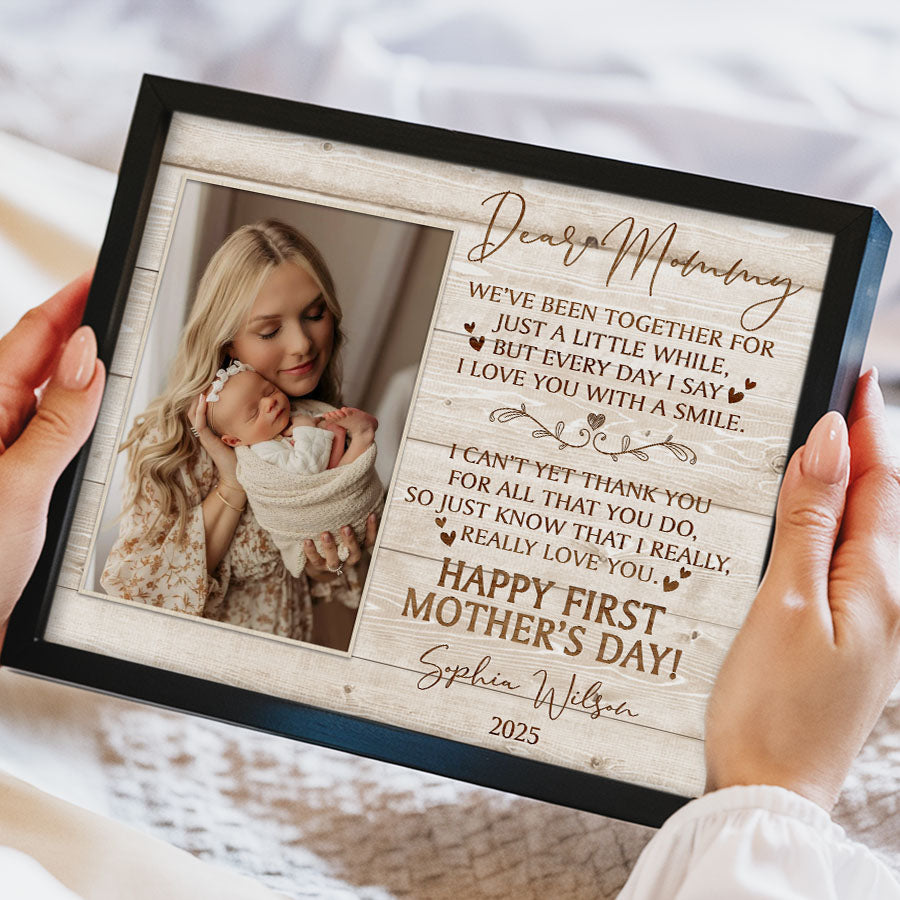 Dear Mommy
WE'VE BEEN TOGETHER FOR
JUST A LITTLE WHILE,
BUT EVERY DAY I SAY
I LOVE YOU WITH A SMILE.
I CAN'T YET THANK YOU
FOR ALL THAT YOU DO,
SO JUST KNOW THAT I REALLY,
REALLY LOVE YOU.
HAPPY FIRST
MOTHER'S DAY!
Sophia Wilson
2025